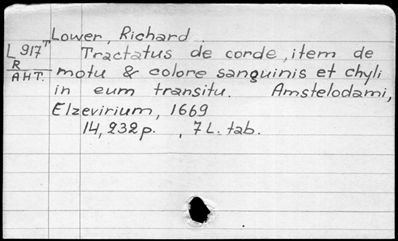 Lower, Richard.
L917T Tractatus de corde, item de
R
AHT. motu & colore sanguinis et chyli
in eum transitu. Amstelodami,
Elzevirium, 1669
14, 232 p. , 7 L. tab.